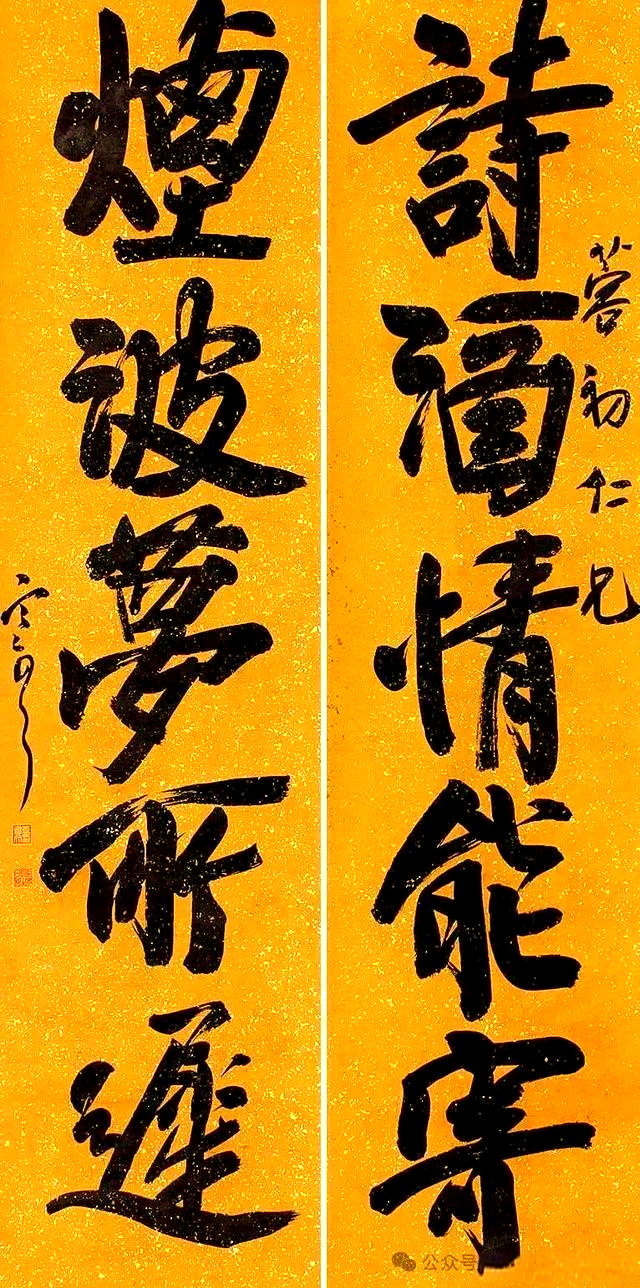 蓉初仁兄
詩酒情能寄
煙波夢所遲
公众号